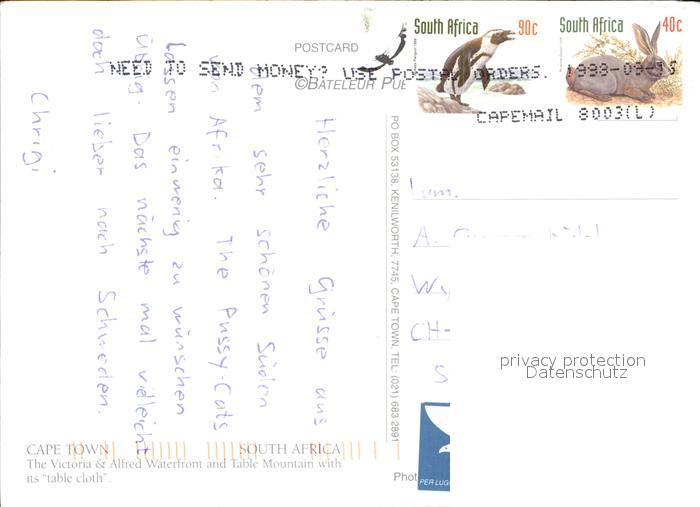 South Africa 90c
South Africa 40c
POSTCARD
NEED TO SEND MONEY? USE POSTAL ORDERS. 1998-09-15
©BATELEUR PU
CAPEMAIL 8003(L)
Herzliche Grüsse aus
dem sehr schönen Süden
von Afrika. The Pussy-Cats
lassen einwenig zu wünschen
übrig. Das nächste mal vielleicht
doch lieber nach Schweden.
Chrigi
PO BOX 53138, KENILWORTH, 7745, CAPE TOWN, TEL: (021) 683 2891
A.
CH-
privacy protection
Datenschutz
CAPE TOWN SOUTH AFRICA
The Victoria & Alfred Waterfront and Table Mountain with
its "table cloth".
Phot
PER LUG